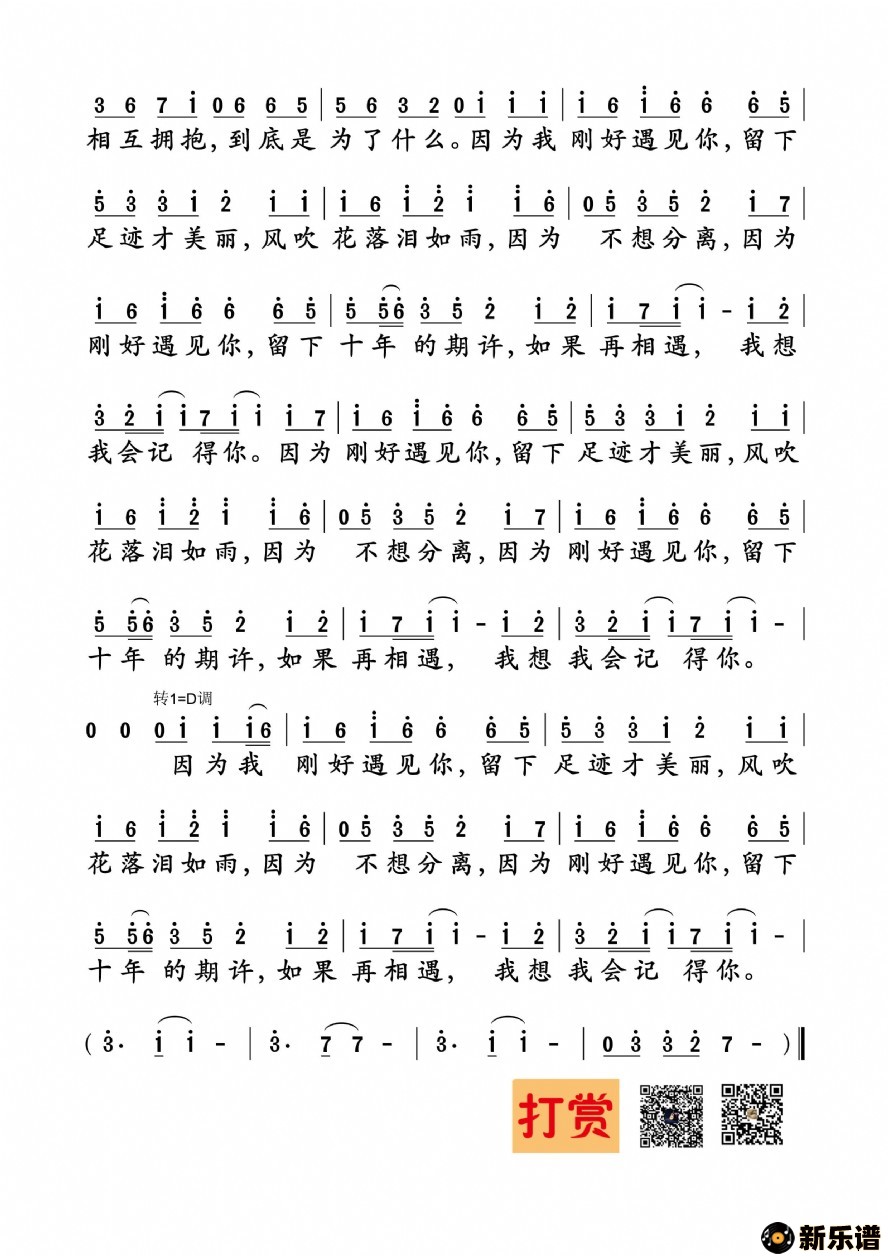 3 6 7 i 0 6 6 5 | 5 6 3 2 0 i i i | i 6 i 6 6 6 5 |
相互拥抱,到底是 为了什么。因为我 刚好遇见你,留下
5 3 3 i 2 i i | i 6 i 2 i i 6 | 0 5 3 5 2 i 7 |
足迹才美丽,风吹 花落泪如雨,因为 不想分离,因为
i 6 i 6 6 6 5 | 5 5 6 3 5 2 i 2 | i 7 i i - i 2 |
刚好遇见你,留下 十年 的期许,如果 再相遇, 我想
3 2 i i 7 i i i 7 | i 6 i 6 6 6 5 | 5 3 3 i 2 i i |
我会记 得你。因为 刚好遇见你,留下 足迹才美丽,风吹
i 6 i 2 i i 6 | 0 5 3 5 2 i 7 | i 6 i 6 6 6 5 |
花落泪如雨,因为 不想分离,因为 刚好遇见你,留下
5 5 6 3 5 2 i 2 | i 7 i i - i 2 | 3 2 i i 7 i i - |
十年 的期许,如果 再相遇, 我想 我会记 得你。
转1=D调
0 0 0 i i i 6 | i 6 i 6 6 6 5 | 5 3 3 i 2 i i |
因为我 刚好遇见你,留下 足迹才美丽,风吹
i 6 i 2 i i 6 | 0 5 3 5 2 i 7 | i 6 i 6 6 6 5 |
花落泪如雨,因为 不想分离,因为 刚好遇见你,留下
5 5 6 3 5 2 i 2 | i 7 i i - i 2 | 3 2 i i 7 i i - |
十年 的期许,如果 再相遇, 我想 我会记 得你。
( 3· i i - | 3· 7 7 - | 3· i i - | 0 3 3 2 7 - )
打赏
新乐谱